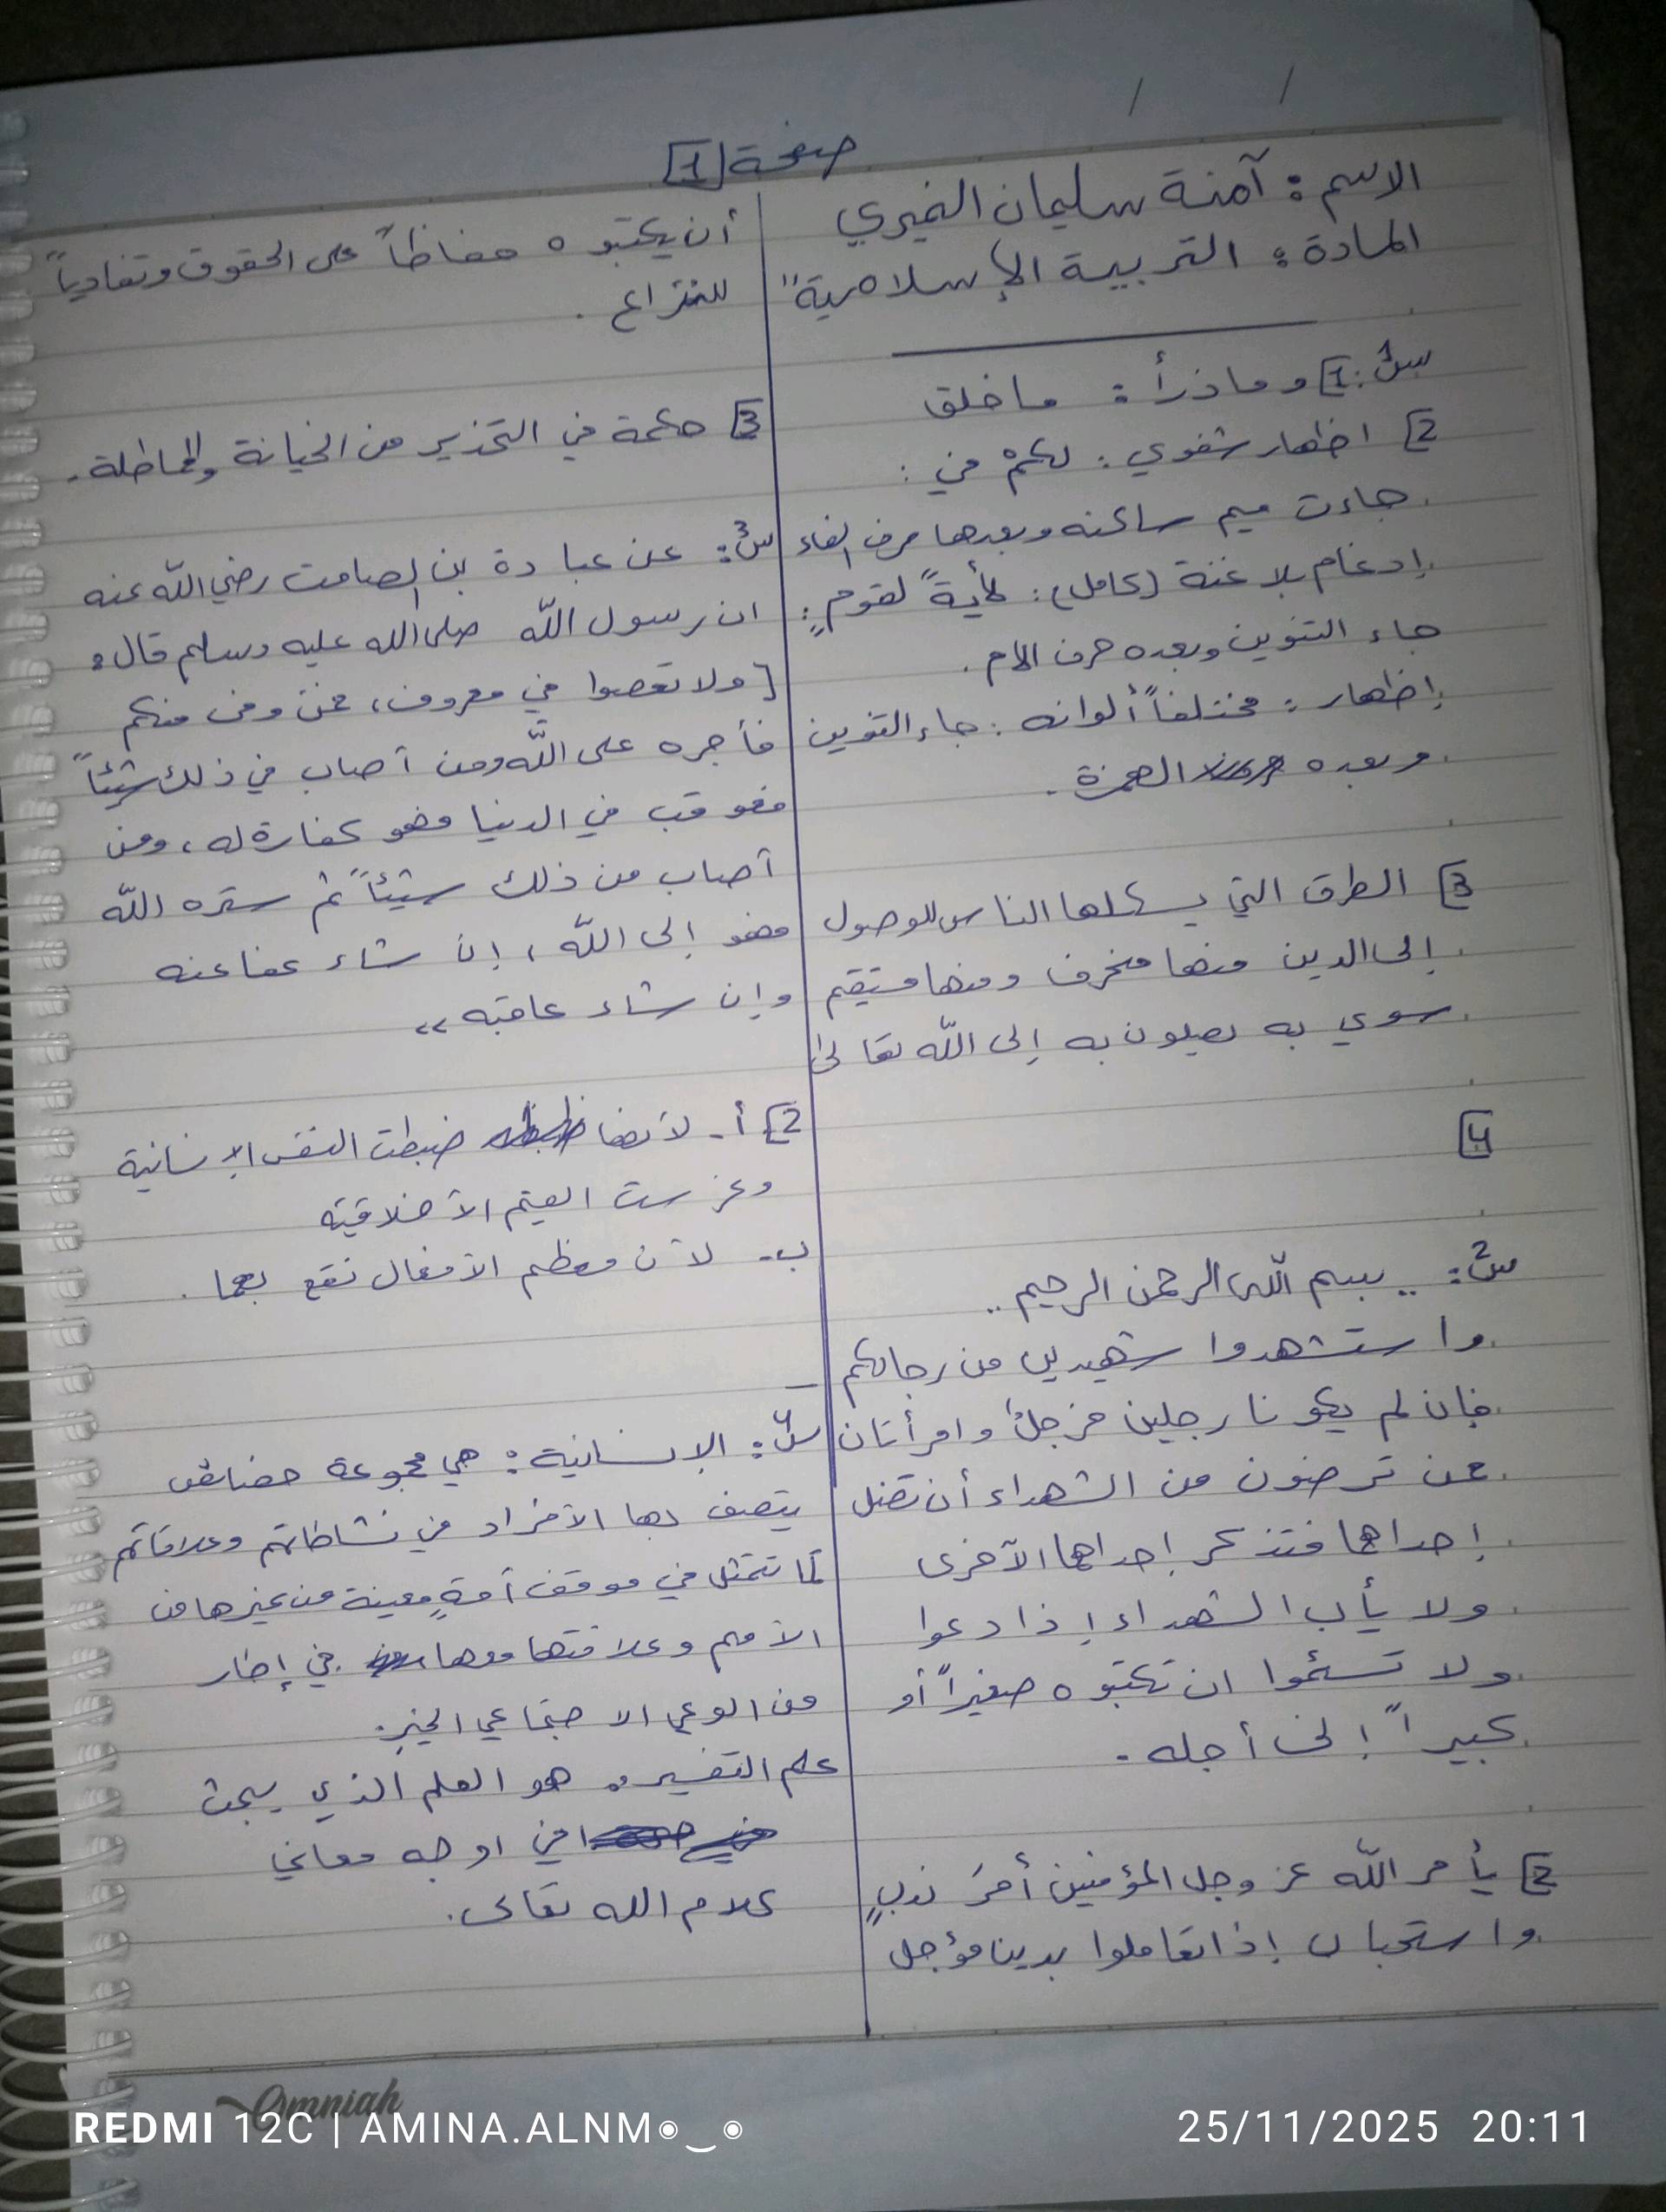 صفحة [1]
الاسم : آمنة سليمان النميري
المادة : التربية الإسلامية"
س1: [1 وما ذرأ : ما خلق
[2 اظهار شفوي : لكمْ في :
جاءت ميم ساكنه وبعدها حرف الفاء
إدغام بلا غنة (كامل) : لأيةً لقومٍ :
جاء التنوين وبعده حرف اللام .
إظهار : مختلفاً ألوانه : جاء التنوين
وبعده الهمزة .
[3 الطرق التي يسلكها الناس للوصول
إلى الدين منها منحرف ومنها مستقيم
سوي به يصلون به إلى الله تعالى
[4
س2: .. بسم الله الرحمن الرحيم ..
واستشهدوا شهيدين من رجالكم
فإن لم يكونا رجلين فرجلٌ وامرأتان
ممن ترضون من الشهداء أن تضل
إحداهما فتذكر إحداهما الأخرى
ولا يأب الشهداء إذا دعوا
ولا تسئموا ان تكتبوه صغيراً أو
كبيراً إلى أجله .
[2 يأمر الله عز وجل المؤمنين أمرَ ندبٍ
واستحباب إذا تعاملوا بدين مؤجل
أن يكتبوه حفاظاً على الحقوق وتفادياً
للنزاع .
[3 حكمة في التحذير من الخيانة والمماطلة .
س3: عن عبادة بن الصامت رضي الله عنه
ان رسول الله صلى الله عليه وسلم قال :
[ولا تعصوا في معروف، فمن وفى منكم
فأجره على الله ومن أصاب في ذلك شيئاً
فعوقب في الدنيا فهو كفارة له ، ومن
أصاب من ذلك شيئاً ثم ستره الله
فهو إلى الله ، إن شاء عفا عنه
وإن شاء عاقبه ،،
[2 أ- لأنها ضبطت النفس الإنسانية
وغرست القيم الأخلاقية
ب- لأن معظم الأفعال تقع بهما .
س4: الإنسانية : هي مجموعة خصائص
يتصف بها الأفراد في نشاطاتهم وعلاقاتهم
تتمثل في موقف أمةٍ معينة من غيرها من
الأمم وعلاقتها معها في إطار
من الوعي الاجتماعي الخيّر .
علم التفسير : هو العلم الذي يبحث
في اوجه معاني
كلام الله تعالى .
Omniah
REDMI 12C | AMINA.ALNM◉‿◉
25/11/2025 20:11